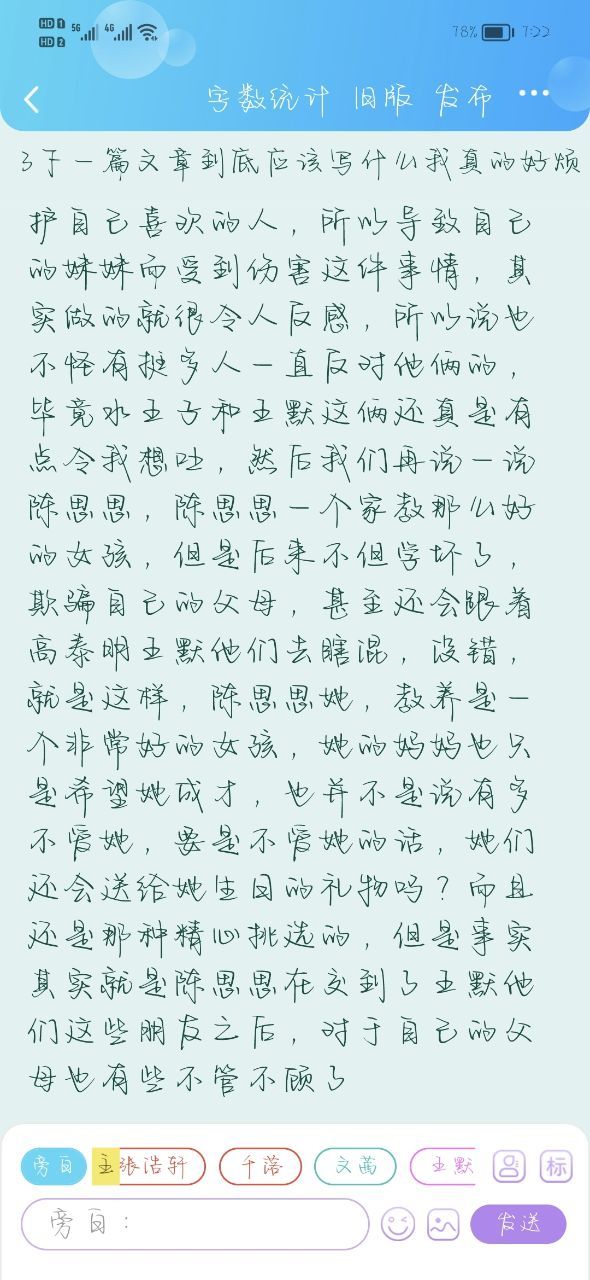 HD 1 5G 4G 78% 7:00
HD 2
字数统计 旧版 发布 ...
了于一篇文章到底应该写什么我真的好烦
护自己喜欢的人，所以导致自己
的妹妹而受到伤害这件事情，其
实做的就很令人反感，所以说也
不怪有挺多人一直反对他俩的，
毕竟水王子和王默这俩还真是有
点令我想吐，然后我们再说一说
陈思思，陈思思一个家教那么好
的女孩，但是后来不但学坏了，
欺骗自己的父母，甚至还会跟着
高泰明王默他们去瞎混，没错，
就是这样，陈思思她，教养是一
个非常好的女孩，她的妈妈也只
是希望她成才，也并不是说有多
不爱她，要是不爱她的话，她们
还会送给她生日的礼物吗？而且
还是那种精心挑选的，但是事实
其实就是陈思思在交到了王默他
们这些朋友之后，对于自己的父
母也有些不管不顾了
旁白 主 张浩轩 千落 文茜 王默 标
旁白： 发送